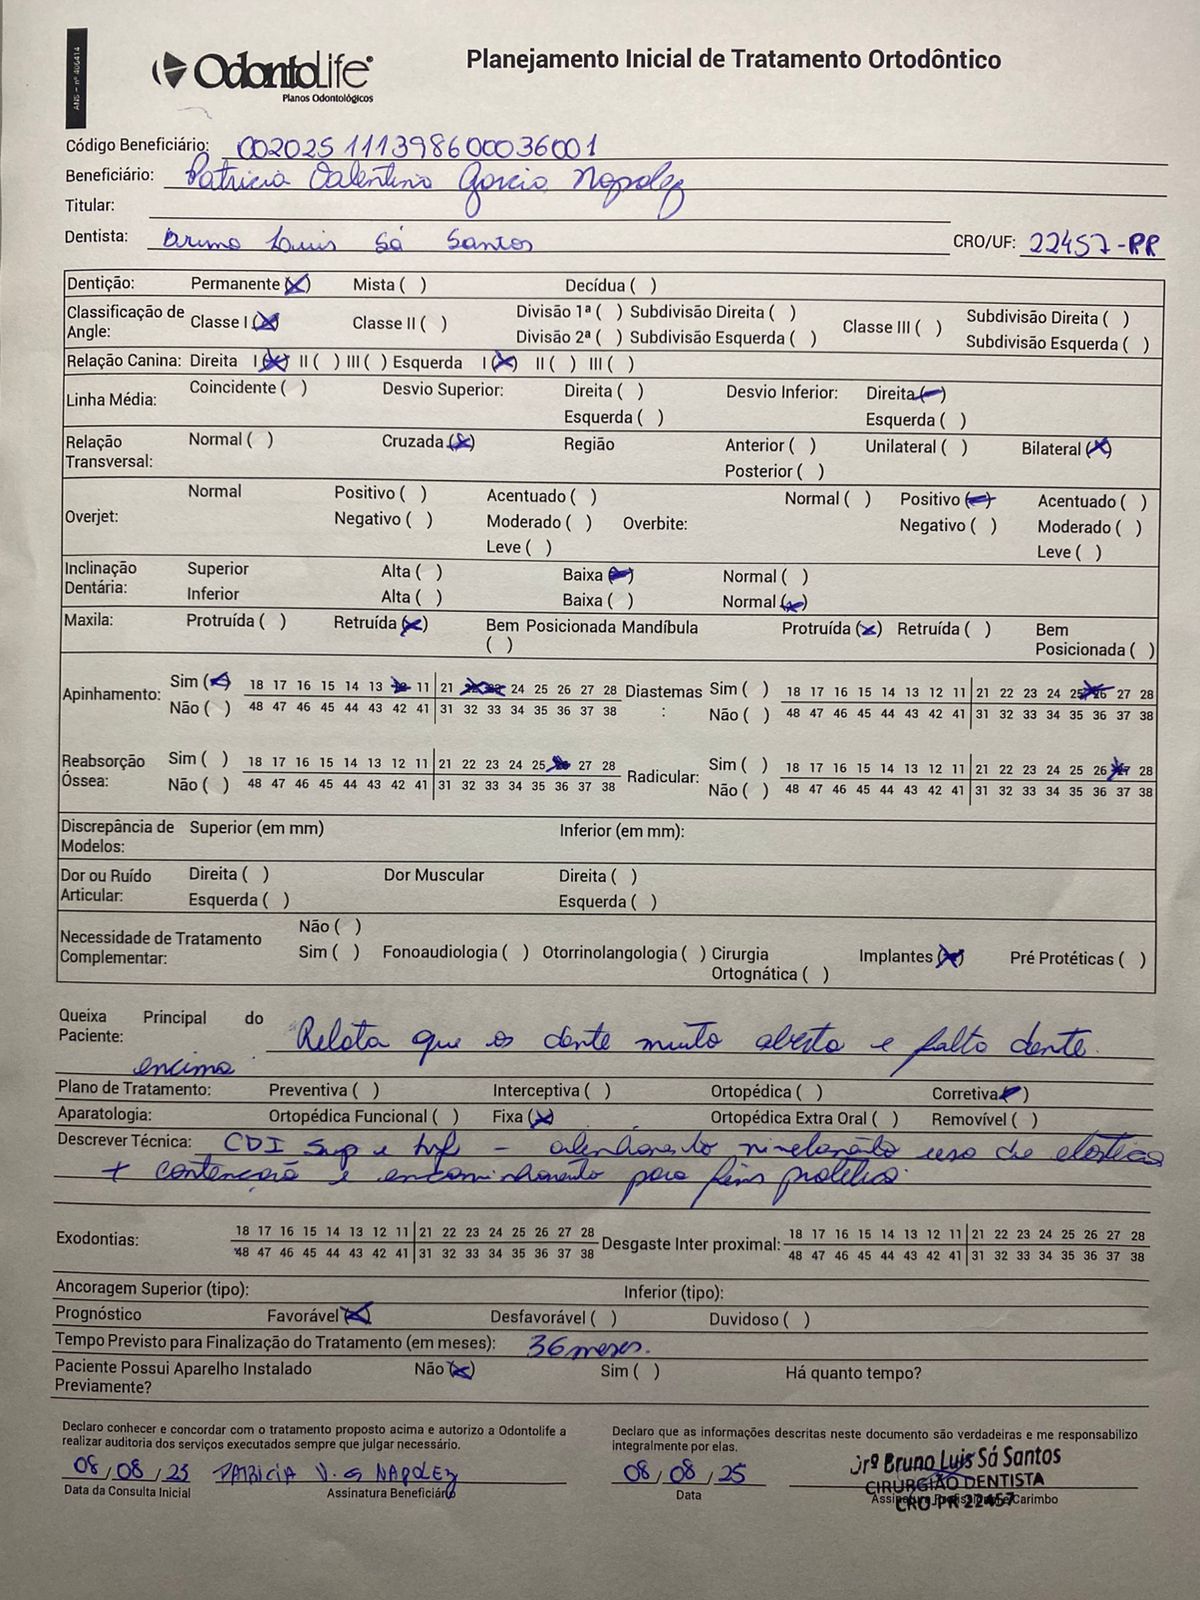 ANS - nº 406414
OdontoLife
Planos Odontológicos
Planejamento Inicial de Tratamento Ortodôntico
Código Beneficiário: 002025111398600036001
Beneficiário: Patricia Valentina Garcia Napolez
Titular:
Dentista: Bruno Luis Sá Santos CRO/UF: 22457-PR
Dentição: Permanente (X) Mista ( ) Decídua ( )
Classificação de Angle: Classe I (X) Classe II ( ) Divisão 1ª ( ) Subdivisão Direita ( ) Divisão 2ª ( ) Subdivisão Esquerda ( ) Classe III ( ) Subdivisão Direita ( ) Subdivisão Esquerda ( )
Relação Canina: Direita I (X) II ( ) III ( ) Esquerda I (X) II ( ) III ( )
Linha Média: Coincidente ( ) Desvio Superior: Direita ( ) Esquerda ( ) Desvio Inferior: Direita (X) Esquerda ( )
Relação Transversal: Normal ( ) Cruzada (X) Região Anterior ( ) Posterior ( ) Unilateral ( ) Bilateral (X)
Overjet: Normal Positivo ( ) Negativo ( ) Acentuado ( ) Moderado ( ) Leve ( ) Overbite: Normal ( ) Positivo (X) Negativo ( ) Acentuado ( ) Moderado ( ) Leve ( )
Inclinação Dentária: Superior Alta ( ) Baixa (X) Normal ( )
Inferior Alta ( ) Baixa ( ) Normal (X)
Maxila: Protruída ( ) Retruída (X) Bem Posicionada ( ) Mandíbula Protruída (X) Retruída ( ) Bem Posicionada ( )
Apinhamento: Sim (X) 18 17 16 15 14 13 12 11 21 22 23 24 25 26 27 28 Diastemas: Sim ( ) 18 17 16 15 14 13 12 11 21 22 23 24 25 26 27 28
Não ( ) 48 47 46 45 44 43 42 41 31 32 33 34 35 36 37 38 Não ( ) 48 47 46 45 44 43 42 41 31 32 33 34 35 36 37 38
Reabsorção Óssea: Sim ( ) 18 17 16 15 14 13 12 11 21 22 23 24 25 26 27 28 Radicular: Sim ( ) 18 17 16 15 14 13 12 11 21 22 23 24 25 26 27 28
Não ( ) 48 47 46 45 44 43 42 41 31 32 33 34 35 36 37 38 Não ( ) 48 47 46 45 44 43 42 41 31 32 33 34 35 36 37 38
Discrepância de Modelos: Superior (em mm) Inferior (em mm):
Dor ou Ruído Articular: Direita ( ) Esquerda ( ) Dor Muscular Direita ( ) Esquerda ( )
Necessidade de Tratamento Complementar: Não ( ) Sim ( ) Fonoaudiologia ( ) Otorrinolangologia ( ) Cirurgia Ortognática ( ) Implantes (X) Pré Protéticas ( )
Queixa Principal do Paciente: Relata que os dente muito aberto e falta dente.
encima
Plano de Tratamento: Preventiva ( ) Interceptiva ( ) Ortopédica ( ) Corretiva (X)
Aparatologia: Ortopédica Funcional ( ) Fixa (X) Ortopédica Extra Oral ( ) Removível ( )
Descrever Técnica: CDI Sup e Inf - alinhamento nivelamento uso de elástico
+ contenção e encaminhamento para fins protético.
Exodontias: 18 17 16 15 14 13 12 11 21 22 23 24 25 26 27 28 Desgaste Inter proximal: 18 17 16 15 14 13 12 11 21 22 23 24 25 26 27 28
48 47 46 45 44 43 42 41 31 32 33 34 35 36 37 38 48 47 46 45 44 43 42 41 31 32 33 34 35 36 37 38
Ancoragem Superior (tipo): Inferior (tipo):
Prognóstico Favorável (X) Desfavorável ( ) Duvidoso ( )
Tempo Previsto para Finalização do Tratamento (em meses): 36 meses.
Paciente Possui Aparelho Instalado Previamente? Não (X) Sim ( ) Há quanto tempo?
Declaro conhecer e concordar com o tratamento proposto acima e autorizo a Odontolife a
realizar auditoria dos serviços executados sempre que julgar necessário.
08/08/25 PATRICIA V. G NAPOLEZ
Data da Consulta Inicial Assinatura Beneficiário
Declaro que as informações descritas neste documento são verdadeiras e me responsabilizo
integralmente por elas.
08/08/25
Data
Drº Bruno Luis Sá Santos
CIRURGIÃO DENTISTA
CRO-PR 22457
Assinatura Profissional e Carimbo